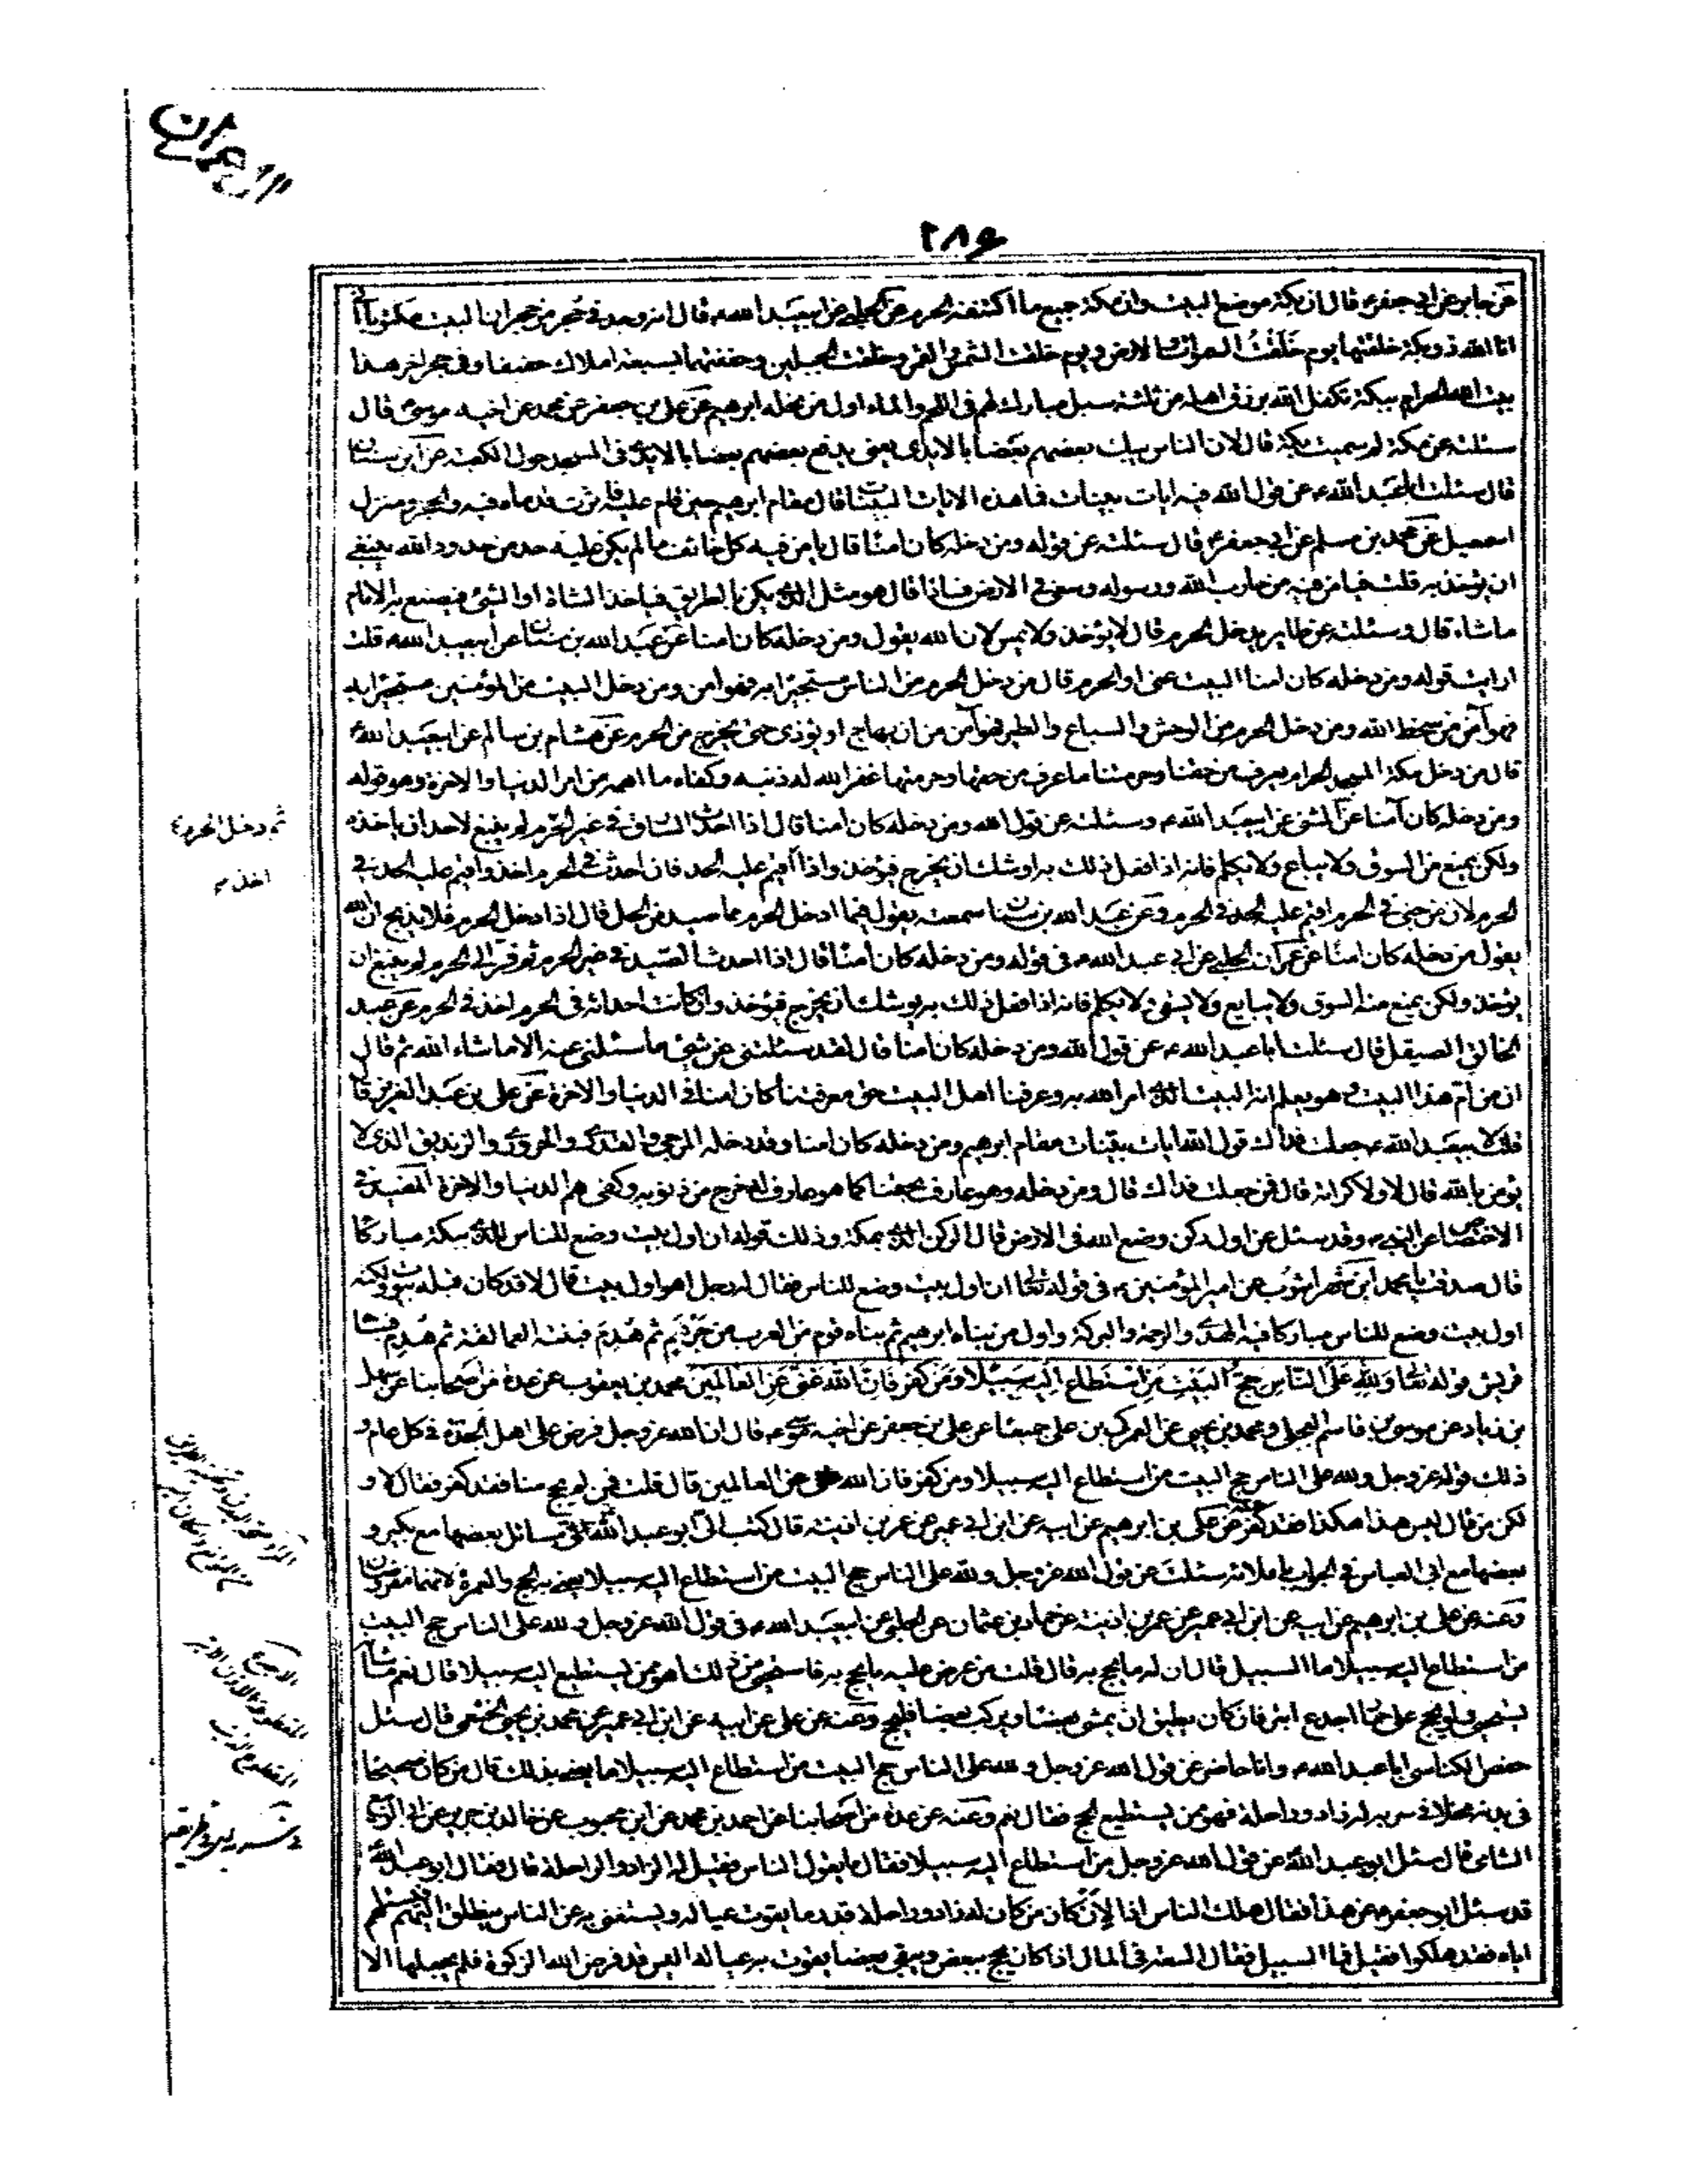 ال عمران
٢٨٦
عن جابر عن ابي جعفر ع قال ان بكة موضع البيت وان مكة جميع ما اكتنفه الحرم عن الحلبي عن ابيعبد الله ع قال انه وجد في حجر من حجرات البيت مكتوبا اني
انا الله ذو بكة خلقتها يوم خلقت السموات والارض ويوم خلقت الشمس والقمر وخلقت الجبلين وحففتهما بسبعة املاك حفيفا وفي حجر اخر هذا
بيت الله الحرام ببكة تكفل الله برزق اهله من ثلثة سبل مبارك لهم في اللحم والماء اول من نحله ابرهيم عن علي بن جعفر عن محمد عن اخيه موسى ع قال
سئلته عن مكة لم سميت بكة قال لان الناس يبك بعضهم بعضا بالايدي يعني يدفع بعضهم بعضا بالايدي في المسجد حول الكعبة عن ابن سنان
قال سئلت ابا عبد الله ع عن قول الله فيه ايات بينات فما هذه الايات البينات قال مقام ابرهيم حين قام عليه فاثرت قدماه فيه والحجر ومنزل
اسمعيل عن محمد بن مسلم عن ابي جعفر ع قال سئلته عن قوله ومن دخله كان امنا قال يامن فيه كل خائف ما لم يكن عليه حد من حدود الله ينبغي
ان يؤخذ به قلت فيامن فيه من حارب الله ورسوله وسعى في الارض فسادا قال هو مثل الذي يكن بالطريق فياخذ الشاة او الشيء فيصنع به الامام
ما شاء قال وسئلته عن طاير يدخل الحرم قال لا يؤخذ ولا يمس لان الله يقول ومن دخله كان امنا عن عبد الله بن سنان عن ابيعبد الله ع قلت
ارايت قوله ومن دخله كان امنا البيت عنى او الحرم قال من دخل الحرم من الناس مستجيرا به فهو امن ومن دخل البيت من المؤمنين مستجيرا به
فهو آمن من سخط الله ومن دخل الحرم من الوحش والسباع والطير فهو آمن من ان يهاج او يؤذى حتى يخرج من الحرم عن هشام بن سالم عن ابيعبد الله ع
قال من دخل مكة المسجد الحرام يعرف من حقنا وحرمتنا ما عرف من حقها وحرمتها غفر الله له ذنبه وكفاه ما اهمه من امر الدنيا والاخرة وهو قوله
ومن دخله كان آمنا عن المثنى عن ابيعبد الله ع وسئلته عن قول الله ومن دخله كان امنا قال اذا احدث السارق في غير الحرم لم ينبغ لاحد ان ياخذه
ولكن يمنع من السوق ولا يباع ولا يكلم فانه اذا فعل ذلك به اوشك ان يخرج فيؤخذ واذا اقيم عليه الحد فان احدث في الحرم اخذ واقيم عليه الحد في
الحرم لان من جنى في الحرم اقيم عليه الحد في الحرم وعن عبد الله بن سنان سمعته يقول فيما ادخل الحرم مما صيد من الحل قال اذا دخل الحرم فلا يذبح ان الله
يقول من دخله كان امنا عن عمران الحلبي عن ابي عبد الله ع في قوله ومن دخله كان امنا قال اذا احدث العبد في غير الحرم ثم فر الى الحرم لم ينبغ ان
يؤخذ ولكن يمنع منه السوق ولا يبايع ولا يسقى ولا يكلم فانه اذا فعل ذلك به يوشك ان يخرج فيؤخذ وان كانت احداثه في الحرم اخذ في الحرم عن عبد
الخالق الصيقل قال سئلت ابا عبد الله ع عن قول الله ومن دخله كان امنا قال لقد سئلتني عن شيء ما سئلني عنه الا ما شاء الله ثم قال
ان من ام هذا البيت وهو يعلم انه البيت الذي امر الله به وعرفنا اهل البيت حق معرفتنا كان امنا في الدنيا والاخرة عن علي بن عبد العزيز قال
قلت لابيعبد الله ع جعلت فداك قول الله ايات بينات مقام ابرهيم ومن دخله كان امنا وقد دخله المرجي والقدري والحروري والزنديق الذي لا
يؤمن بالله قال لا ولا كرامة قال فمن جعلت فداك قال ومن دخله وهو عارف بحقنا كما هو عارف له خرج من ذنوبه وكفي هم الدنيا والاخرة المفيد في
الاختصاص عن النبي ص وقد سئل عن اول ركن وضع الله في الارض قال الركن الذي بمكة وذلك قوله ان اول بيت وضع للناس للذي ببكة مباركا
قال صدقت يا محمد ابن شهر اشوب عن امير المؤمنين ع في قوله تعالى ان اول بيت وضع للناس فقال له رجل اهو اول بيت قال لا قد كان قبله بيوت ولكنه
اول بيت وضع للناس مباركا فيه الهدى والرحمة والبركة واول من بناه ابرهيم ثم بناه قوم من العرب من جرهم ثم هدم فبنته العمالقة ثم هدم فبنتها
قريش قوله تعالى ولله على الناس حج البيت من استطاع اليه سبيلا ومن كفر فان الله غني عن العالمين محمد بن يعقوب عن عدة من اصحابنا عن سهل
بن زياد عن موسى بن قاسم البجلي ومحمد بن يحيى عن العمركي بن علي جميعا عن علي بن جعفر عن اخيه موسى ع قال ان الله عز وجل فرض على اهل الجدة في كل عام و
ذلك قوله عز وجل ولله على الناس حج البيت من استطاع اليه سبيلا ومن كفر فان الله غني عن العالمين قال قلت فمن لم يحج منا فقد كفر فقال لا و
لكن من قال ليس هذا هكذا فقد كفر وعنه عن علي بن ابرهيم عن ابيه عن ابن ابي عمير عن عمر بن اذينة قال كتبت الى ابو عبد الله ع في مسائل بعضها مع بكير و
بعضها مع ابي العباس في الجواب باملائه سئلت عن قول الله عز وجل ولله على الناس حج البيت من استطاع اليه سبيلا يعني به الحج والعمرة لانهما مفروضان
وعنه عن علي بن ابرهيم عن ابيه عن ابن ابي عمير عن عمر بن اذينة عن حماد بن عثمان عن الحلبي عن ابيعبد الله ع في قول الله عز وجل ولله على الناس حج البيت
من استطاع اليه سبيلا ما السبيل قال ان له ما يحج به قال قلت من عرض عليه ما يحج به فاستحيى من ذلك اهو ممن يستطيع اليه سبيلا قال نعم ما شانه
يستحيي ولو يحج على حمار اجدع ابتر فان كان يطيق ان يمشي بعضا ويركب بعضا فليحج وعنه عن علي عن ابيه عن ابن ابي عمير عن محمد بن يحيى الخثعمي قال سئل
حفص الكناسي ابا عبد الله ع وانا حاضر عن قول الله عز وجل ولله على الناس حج البيت من استطاع اليه سبيلا ما يعني بذلك قال من كان صحيحا
في بدنه مخلا في سربه له زاد وراحلة فهو ممن يستطيع الحج فقال نعم وعنه عن عدة من اصحابنا عن احمد بن محمد عن ابن محبوب عن خالد بن جرير عن ابي الربيع
الشامي قال سئل ابو عبد الله ع عن قول الله عز وجل من استطاع اليه سبيلا فقال ما يقول الناس فقيل له الزاد والراحلة قال فقال ابو عبد الله ع
قد سئل ابو جعفر ع عن هذا فقال هلك الناس اذا لان كان من كان له زاد وراحلة قدر ما يقوت عياله ويستغني به عن الناس ينطلق اليهم فيسئلهم
اياه فقد هلكوا فقيل له فما السبيل فقال السعة في المال اذا كان يحج ببعض ويبقي بعضا يقوت به عياله اليس قد فرض الله الزكوة فلم يجعلها الا
ثم دخل الحرم
اخذ